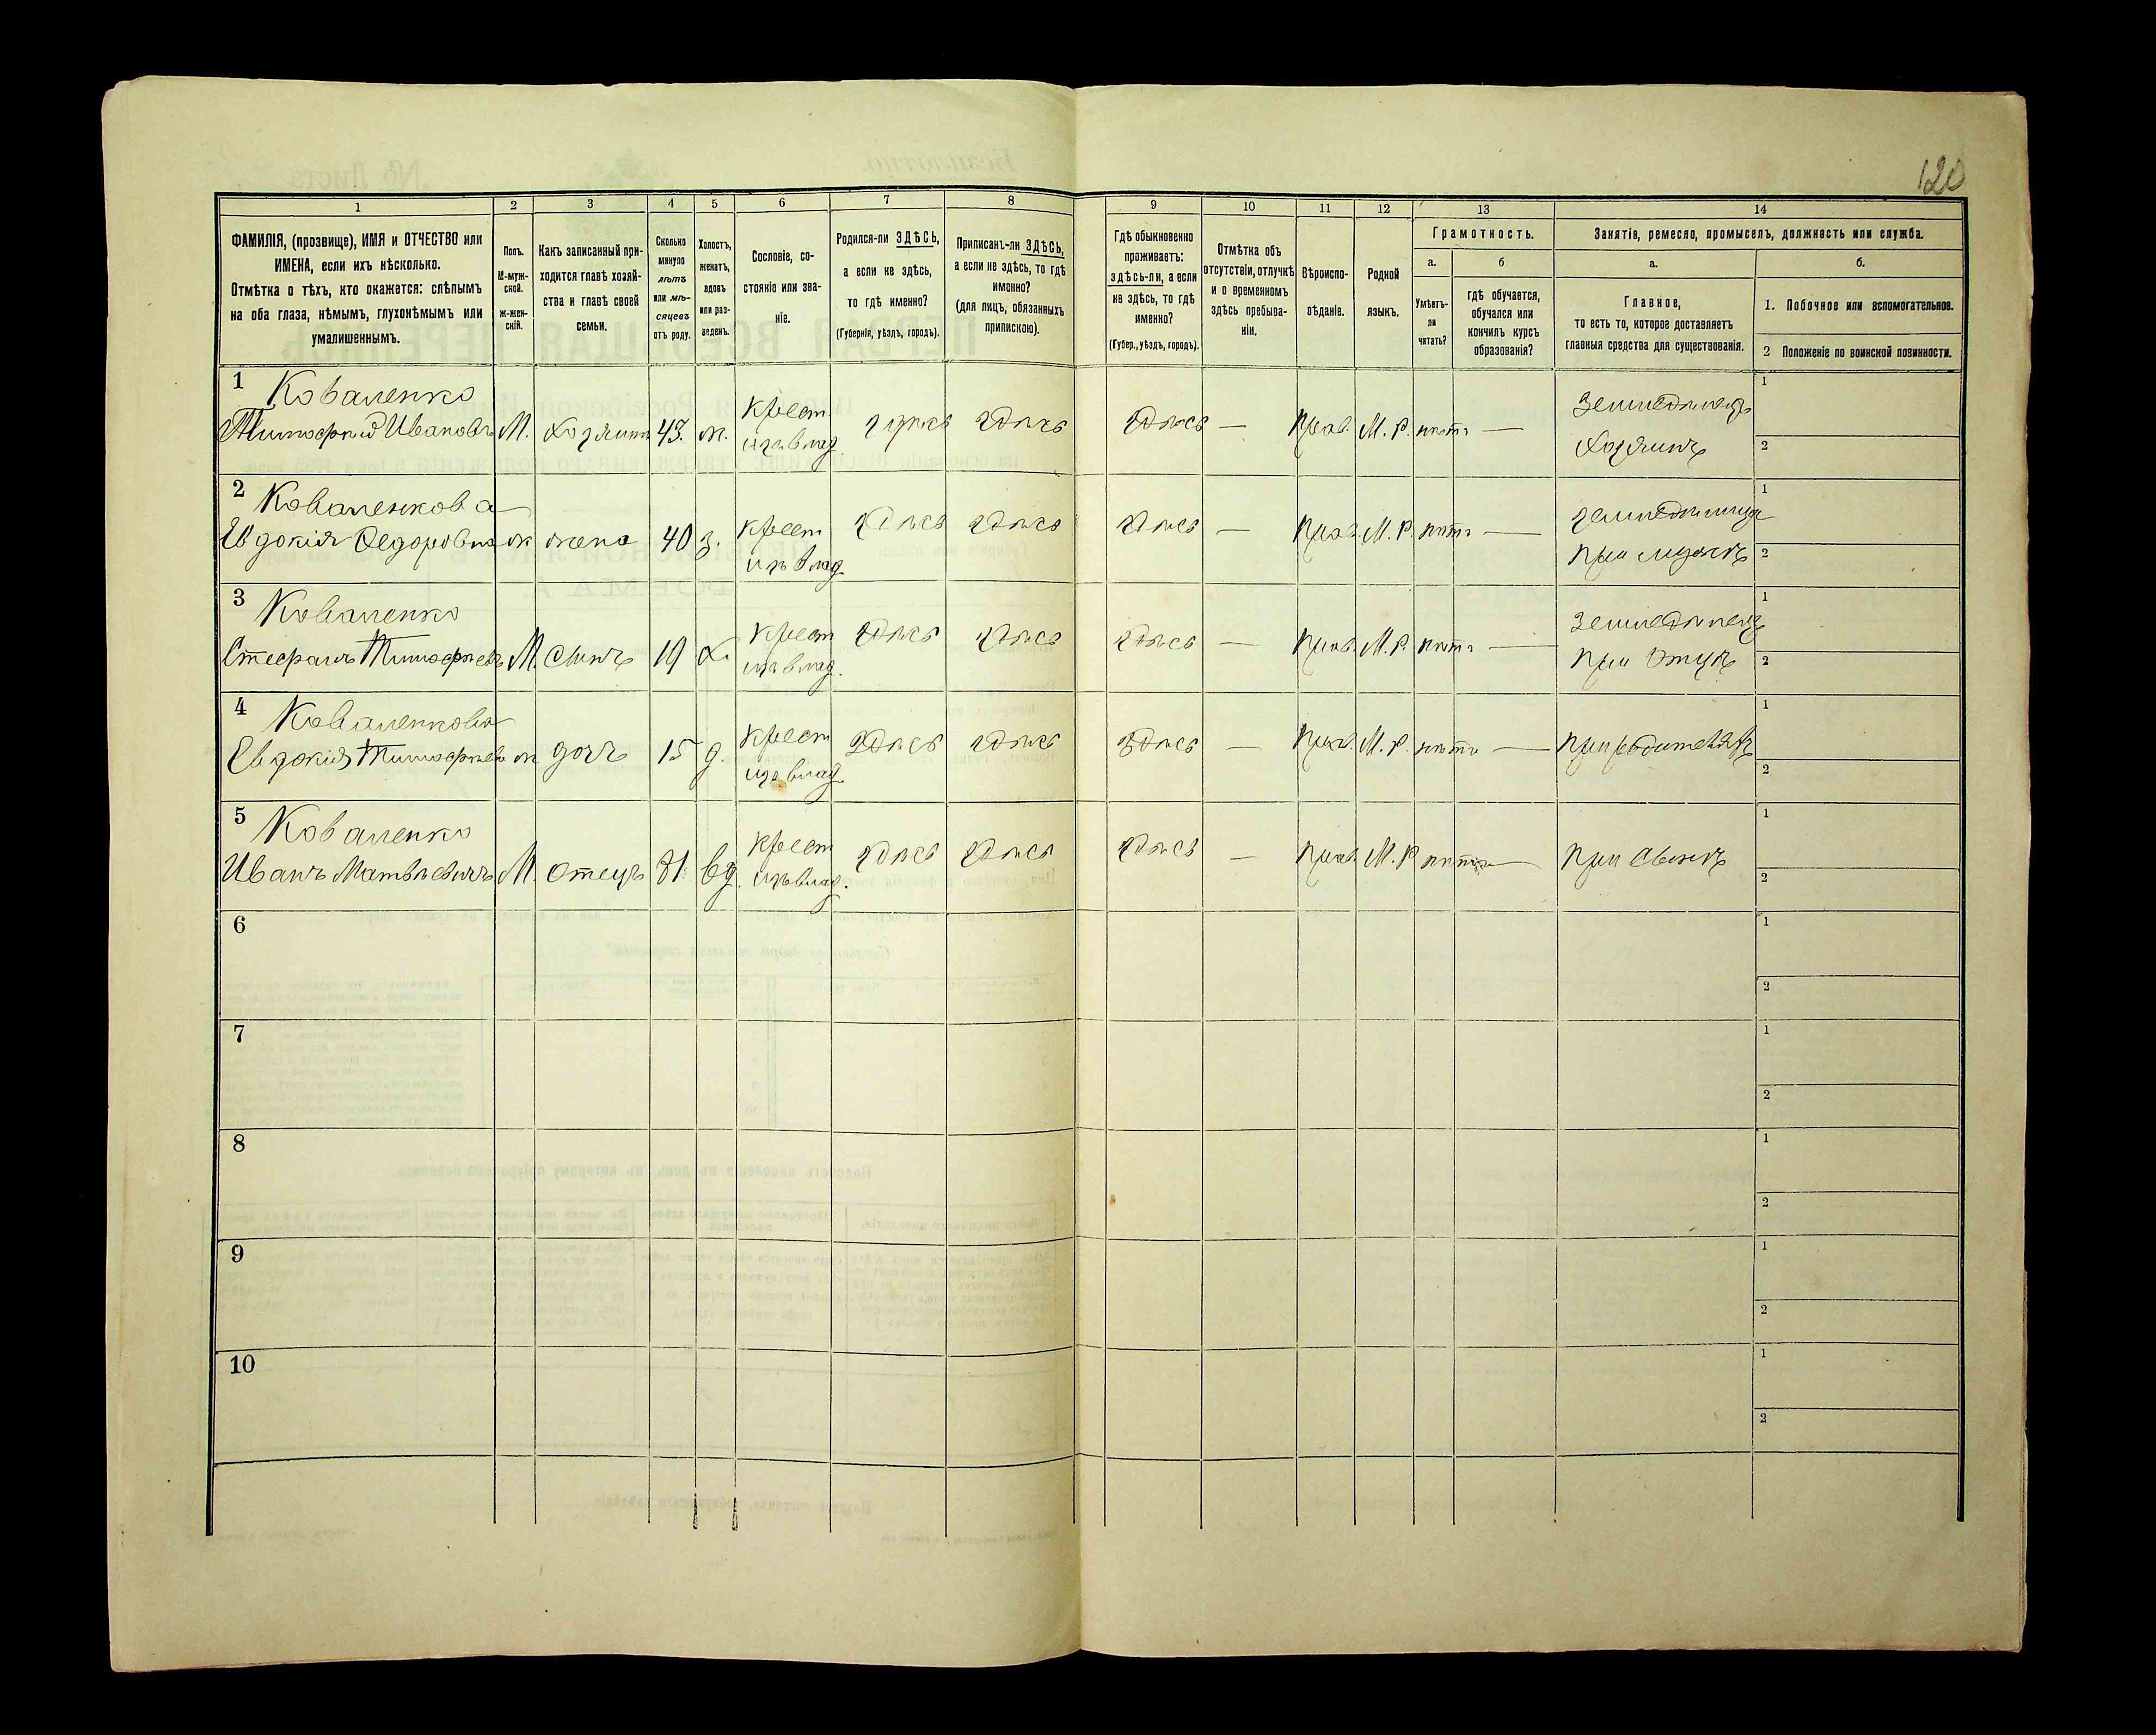 120
1
2
3
4
5
6
7
8
9
10
11
12
13
14
ФАМИЛІЯ, (прозвище), ИМЯ и ОТЧЕСТВО или
ИМЕНА, если ихъ нѣсколько.
Отмѣтка о тѣхъ, кто окажется: слѣпымъ
на оба глаза, нѣмымъ, глухонѣмымъ или
умалишеннымъ.
Полъ.
М-муж-
ской.
ж-жен-
скій.
Какъ записанный при-
ходится главѣ хозяй-
ства и главѣ своей
семьи.
Сколько
минуло
лѣтъ
или мѣ-
сяцевъ
отъ роду.
Холостъ,
женатъ,
вдовъ
или раз-
веденъ.
Сословіе, со-
стояніе или зва-
ніе.
Родился-ли ЗДѢСЬ,
а если не здѣсь,
то гдѣ именно?
(Губернія, уѣздъ, городъ).
Приписанъ-ли ЗДѢСЬ,
а если не здѣсь, то гдѣ
именно?
(для лицъ, обязанныхъ
припискою).
Гдѣ обыкновенно
проживаетъ:
здѣсь-ли, а если
не здѣсь, то гдѣ
именно?
(Губер., уѣздъ, городъ).
Отмѣтка объ
отсутствіи, отлучкѣ
и о временномъ
здѣсь пребыва-
ніи.
Вѣроиспо-
вѣданіе.
Родной
языкъ.
Грамотность.
а.
б
Умѣетъ-
ли
читать?
гдѣ обучается,
обучался или
кончилъ курсъ
образованія?
Занятіе, ремесло, промыселъ, должность или служба.
а.
б.
Главное,
то есть то, которое доставляетъ
главныя средства для существованія.
1. Побочное или вспомогательное.
2 Положеніе по воинской повинности.
1
Коваленко
Тимофей Ивановъ М. Хозяинъ 43. ж. Крест. изъ влад здѣсь здѣсь здѣсь — Прав. М. Р. нѣтъ — Земледѣлецъ
Хозяинъ
1
2
2
Коваленкова
Евдокія Федоровна ж жена 40 з. Крест изъ влад здѣсь здѣсь здѣсь — Прав. М. Р. нѣтъ — земледѣлица
при мужѣ
1
2
3
Коваленко
Стефанъ Тимофеевъ М. Сынъ 19 х. Крест изъ влад. здѣсь здѣсь здѣсь — Прав. М. Р. нѣтъ — Земледѣлецъ
при Отцѣ
1
2
4
Коваленкова
Евдокія Тимофеев ж дочь 15 д. Крест изъ влад. здѣсь здѣсь здѣсь — Прав. М. Р. нѣтъ — При родителяхъ
1
2
5
Коваленко
Иванъ Матвѣевичъ М. Отецъ 81 вд. Крест изъ влад. здѣсь здѣсь здѣсь — Прав. М. Р нѣтъ — При Сынѣ
1
2
6
1
2
7
1
2
8
1
2
9
1
2
10
1
2